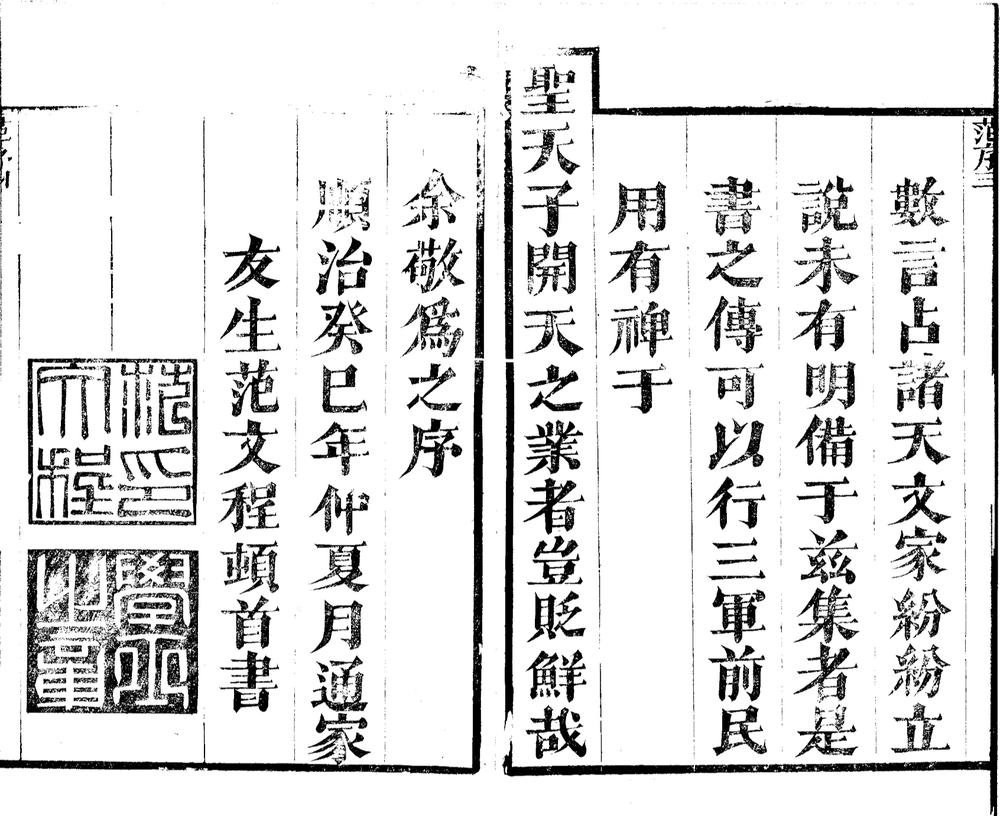 范序
數言占諸天文家紛紛立
說未有明備于茲集者是
書之傳可以行三軍前民
用有禆于
聖天子開天之業者豈貶鮮哉
余敬爲之序
順治癸巳年仲夏月通家
友生范文程頓首書
范印文程